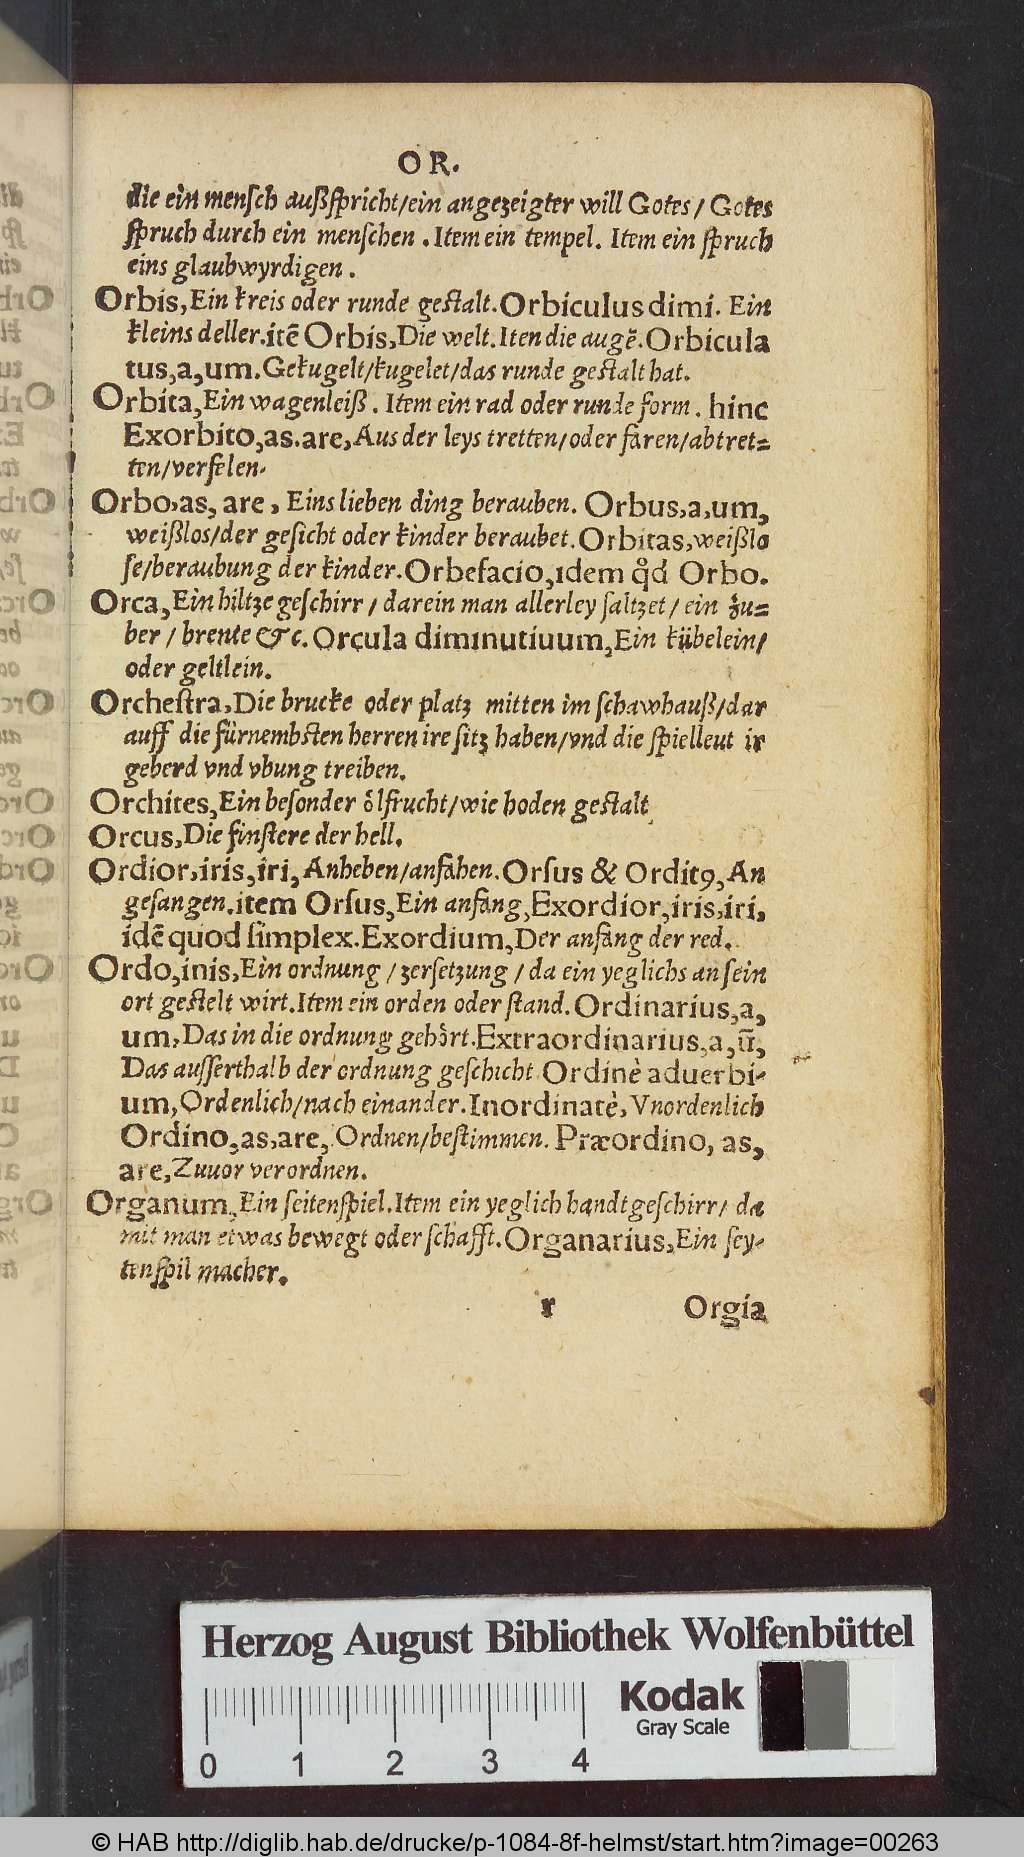 OR.
die ein mensch außspricht/ein angezeigter will Gotes/ Gotes
spruch durch ein menschen . Item ein tempel. Item ein spruch
eins glaubwyrdigen .
Orbis, Ein kreis oder runde gestalt. Orbiculus dimi. Ein
kleins deller. itē Orbis, Die welt. Iten die augē. Orbicula
tus, a, um. Gekugelt/kugelet/das runde gestalt hat.
Orbita, Ein wagenleiß . Item ein rad oder runde form . hinc
Exorbito, as. are, Aus der leys tretten/oder faren/abtret=
ten/verfelen.
Orbo, as, are , Eins lieben ding berauben. Orbus, a, um,
weißlos/der gesicht oder kinder beraubet. Orbitas, weißlo
se/beraubung der kinder. Orbefacio, idem qd̊ Orbo.
Orca, Ein hiltze geschirr / darein man allerley saltzet / ein zu=
ber / brente &c. Orcula diminutiuum, Ein kübelein/
oder geltlein.
Orchestra, Die brucke oder platz mitten im schawhauß/dar
auff die fürnembsten herren ire sitz haben/vnd die spielleut ir
geberd vnd vbung treiben.
Orchites, Ein besonder ölfrucht/wie hoden gestalt
Orcus, Die finstere der hell.
Ordior, iris, iri, Anheben/anfahen. Orsus & Orditꝰ, An
gefangen. item Orsus, Ein anfang, Exordior, iris, iri,
idē quod simplex. Exordium, Der anfang der red.
Ordo, inis, Ein ordnung / zersetzung / da ein yeglichs an sein
ort gestelt wirt. Item ein orden oder stand. Ordinarius, a,
um, Das in die ordnung gehört. Extraordinarius, a, ū,
Das ausserthalb der ordnung geschicht Ordinè aduerbi-
um, Ordenlich/nach einander. Inordinatè, Vnordenlich
Ordino, as, are, Ordnen/bestimmen. Præordino, as,
are, Zuuor verordnen.
Organum, Ein seitenspiel. Item ein yeglich handtgeschirr/ da
mit man etwas bewegt oder schafft. Organarius, Ein sey-
tenspil macher.
r Orgia
Herzog August Bibliothek Wolfenbüttel
Kodak
Gray Scale
0 1 2 3 4
© HAB http://diglib.hab.de/drucke/p-1084-8f-helmst/start.htm?image=00263